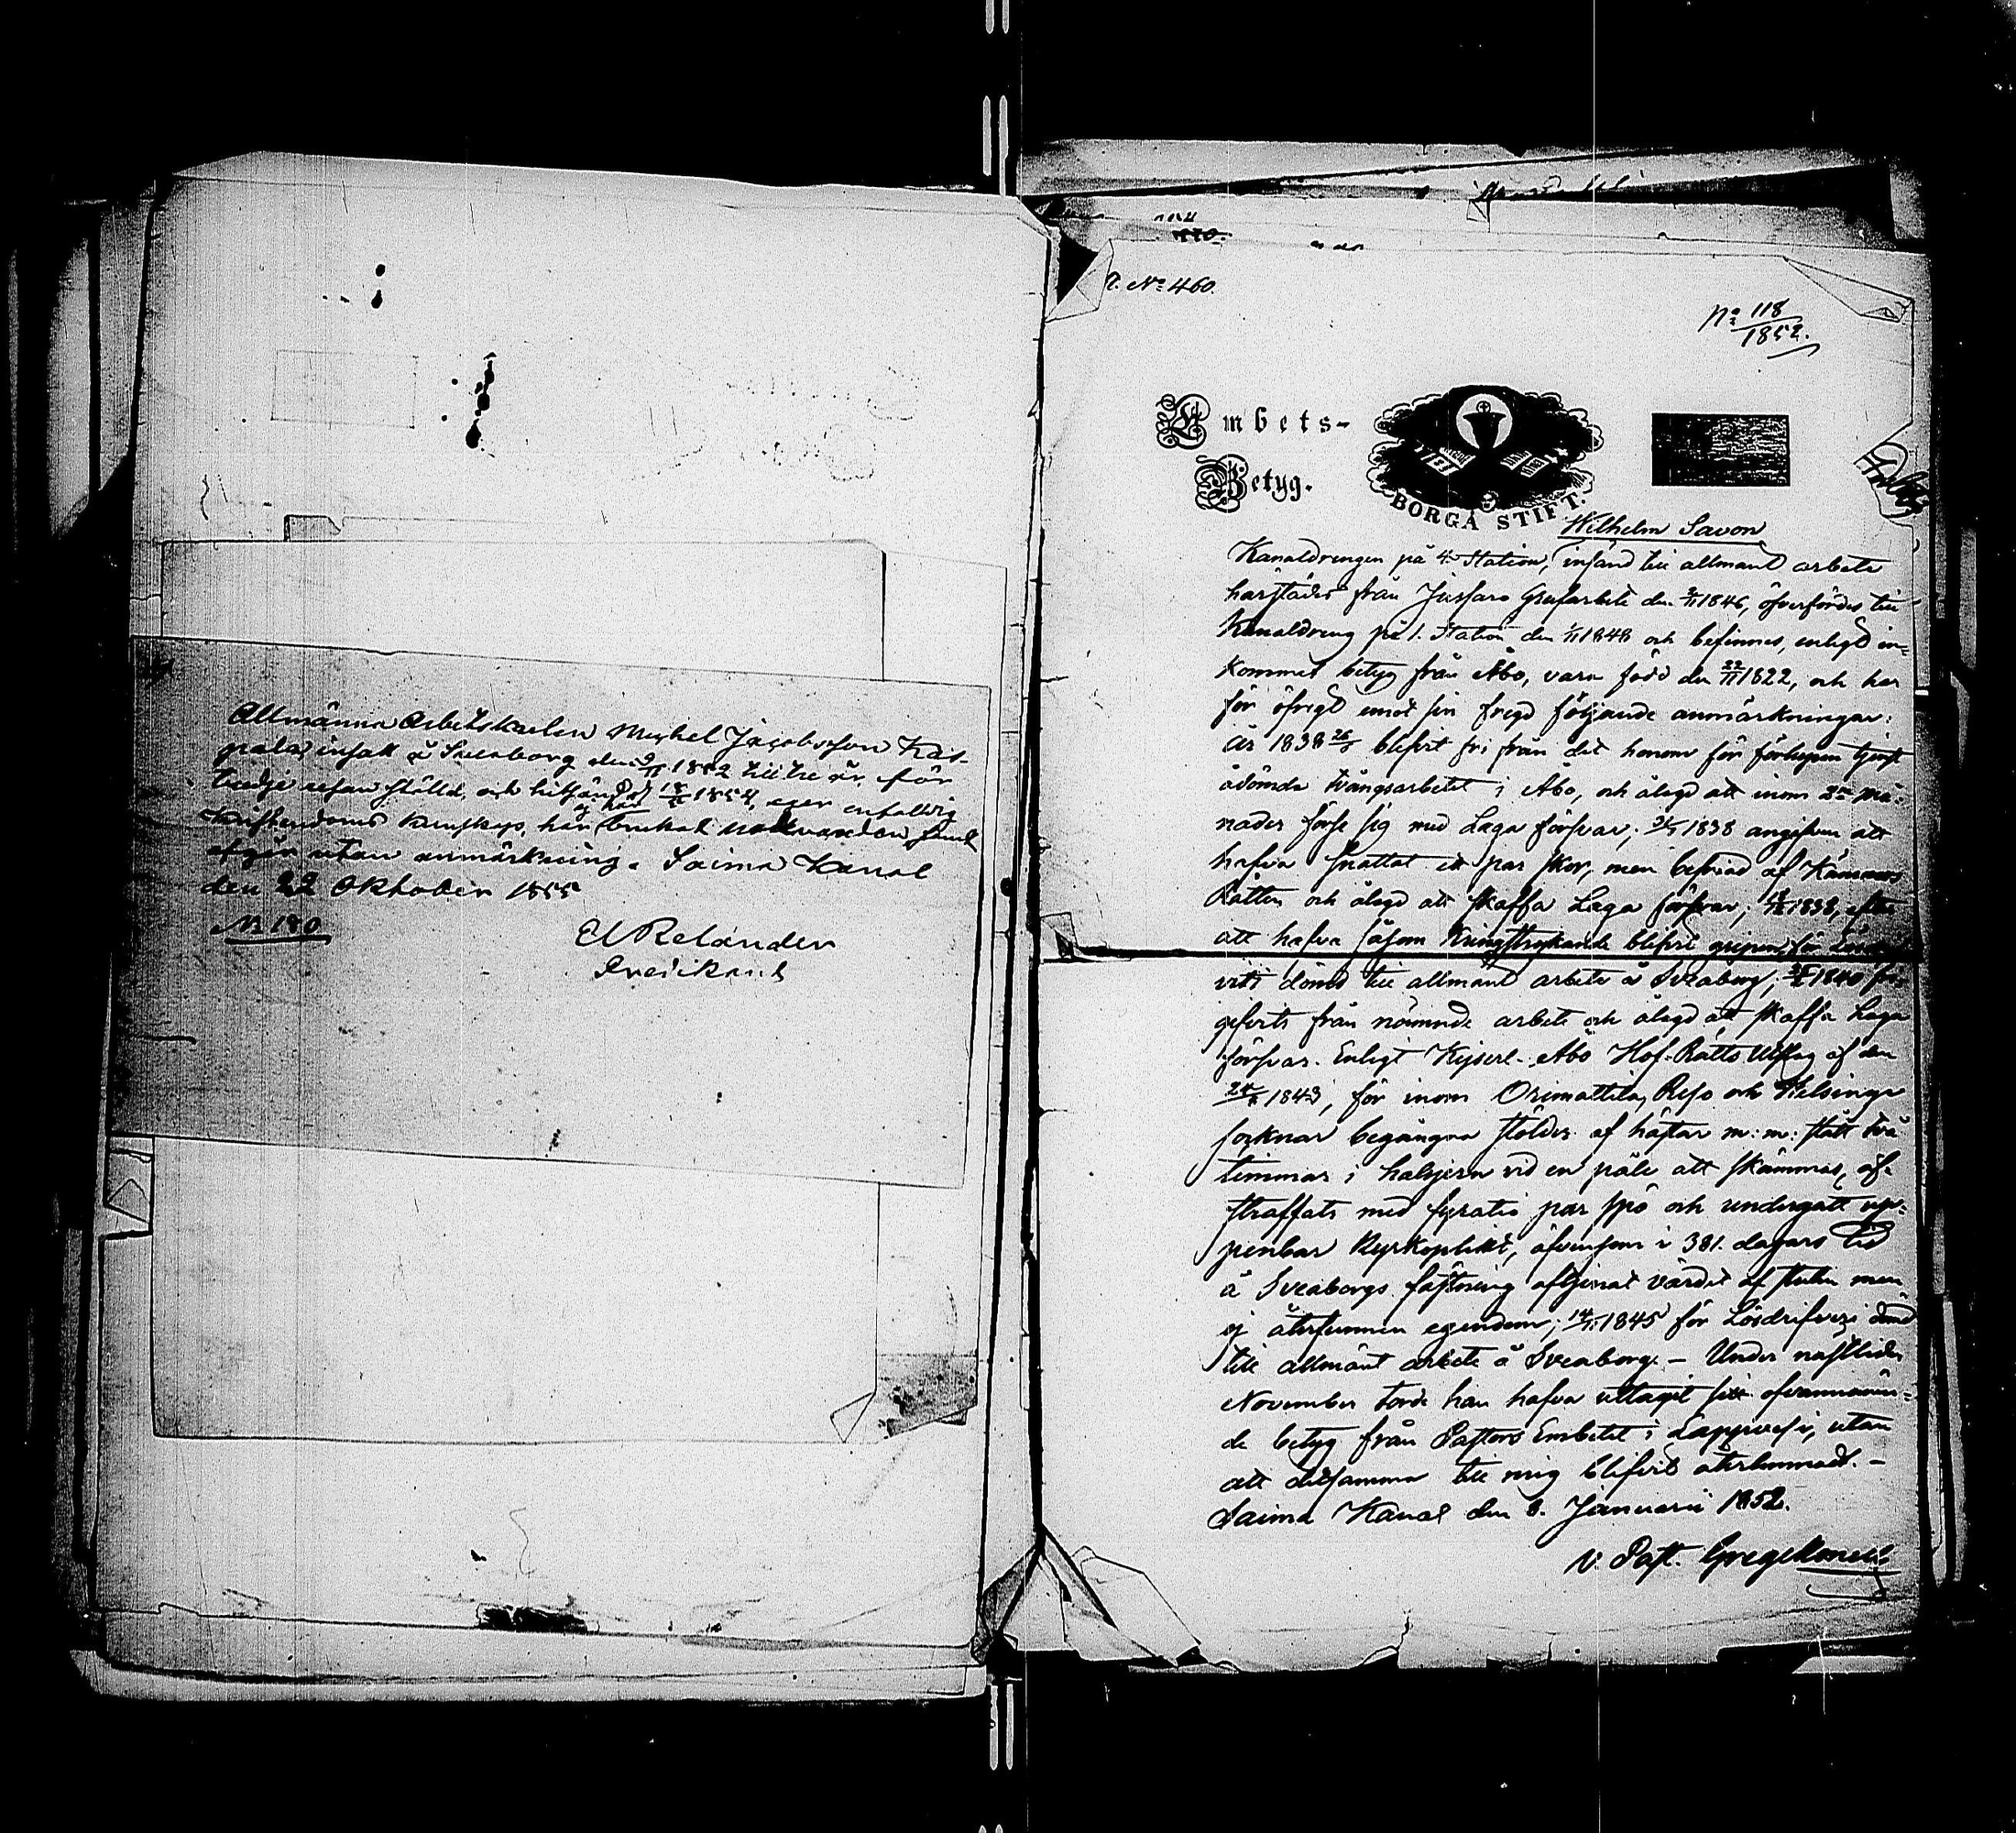 Allmänna Arbetskarlen Mickel Jacobsson Kas-
pala, insatt å Sveaborg den 9/11 1852 till tre år för
tredje resan stöld, och hitsänd d. 18/5 1854, eger enfaldig
Kristendoms kunskap, har ej här brukat nattvarden samt
afgår utan anmärkning. Saima Kanal
den 22 Oktober 1855
No 180
Relander
Predikant
No 460.
No 118
1852.
Embets-
Betyg.
BORGÅ STIFT.
Wilhelm Savon
Kanaldrengen på 4. Station, insänd till allmänt arbete
härstädes från Jussarö Grufarbete den 1846, öfverfördes till
Kanaldreng på 1. Station den 1/11 1848 och befinnes, enligt in-
kommet betyg från Åbo, vara född den 22/11 1822, och har
för öfrigt emot sin frejd följande anmärkningar:
År 1838 26/5 blifvit fri från det honom för förlupen tjenst
ådömda tvångsarbetet i Åbo, och ålagd att inom 2ne må-
nader förse sig med Laga försvar; 1838 angifven att
hafva snattat ett par skor, men befriad af Kämners
Rätten och ålagd att skaffa Laga försvar; 1838, efter
att hafva såsom Kringstrykande blifvit gripen, för Lösdrif-
veri dömd till allmänt arbete å Sveaborg; 1840 fri-
gifvits från nämnde arbete och ålagd att skaffa Laga
försvar. Enligt Kejserl. Åbo Hof-Rätts Utslag af den
1843, för inom Orimattila, Reso och Helsinge
soknar begångna stölder af hästar m: m: stått två
timmar i halsjern vid en påle att skämmas, af-
straffats med fyratio par spö och undergått up-
penbar Kyrkoplikt, äfvensom i 381. dagars tid
å Sveaborgs fästning aftjenat värdet af stulen men
ej återfunnen egendom; 14/11 1845 för Lösdrifveri dömd
till allmänt arbete å Sveaborg. – Under nästlidne
November torde han hafva uttagit sitt ofvannämn-
de betyg från Pastors Embetet i Lappvesi, utan
att detsamma till mig blifvit återlemnadt. –
Saima Kanal den 8. Januarii 1852.
V. Past.